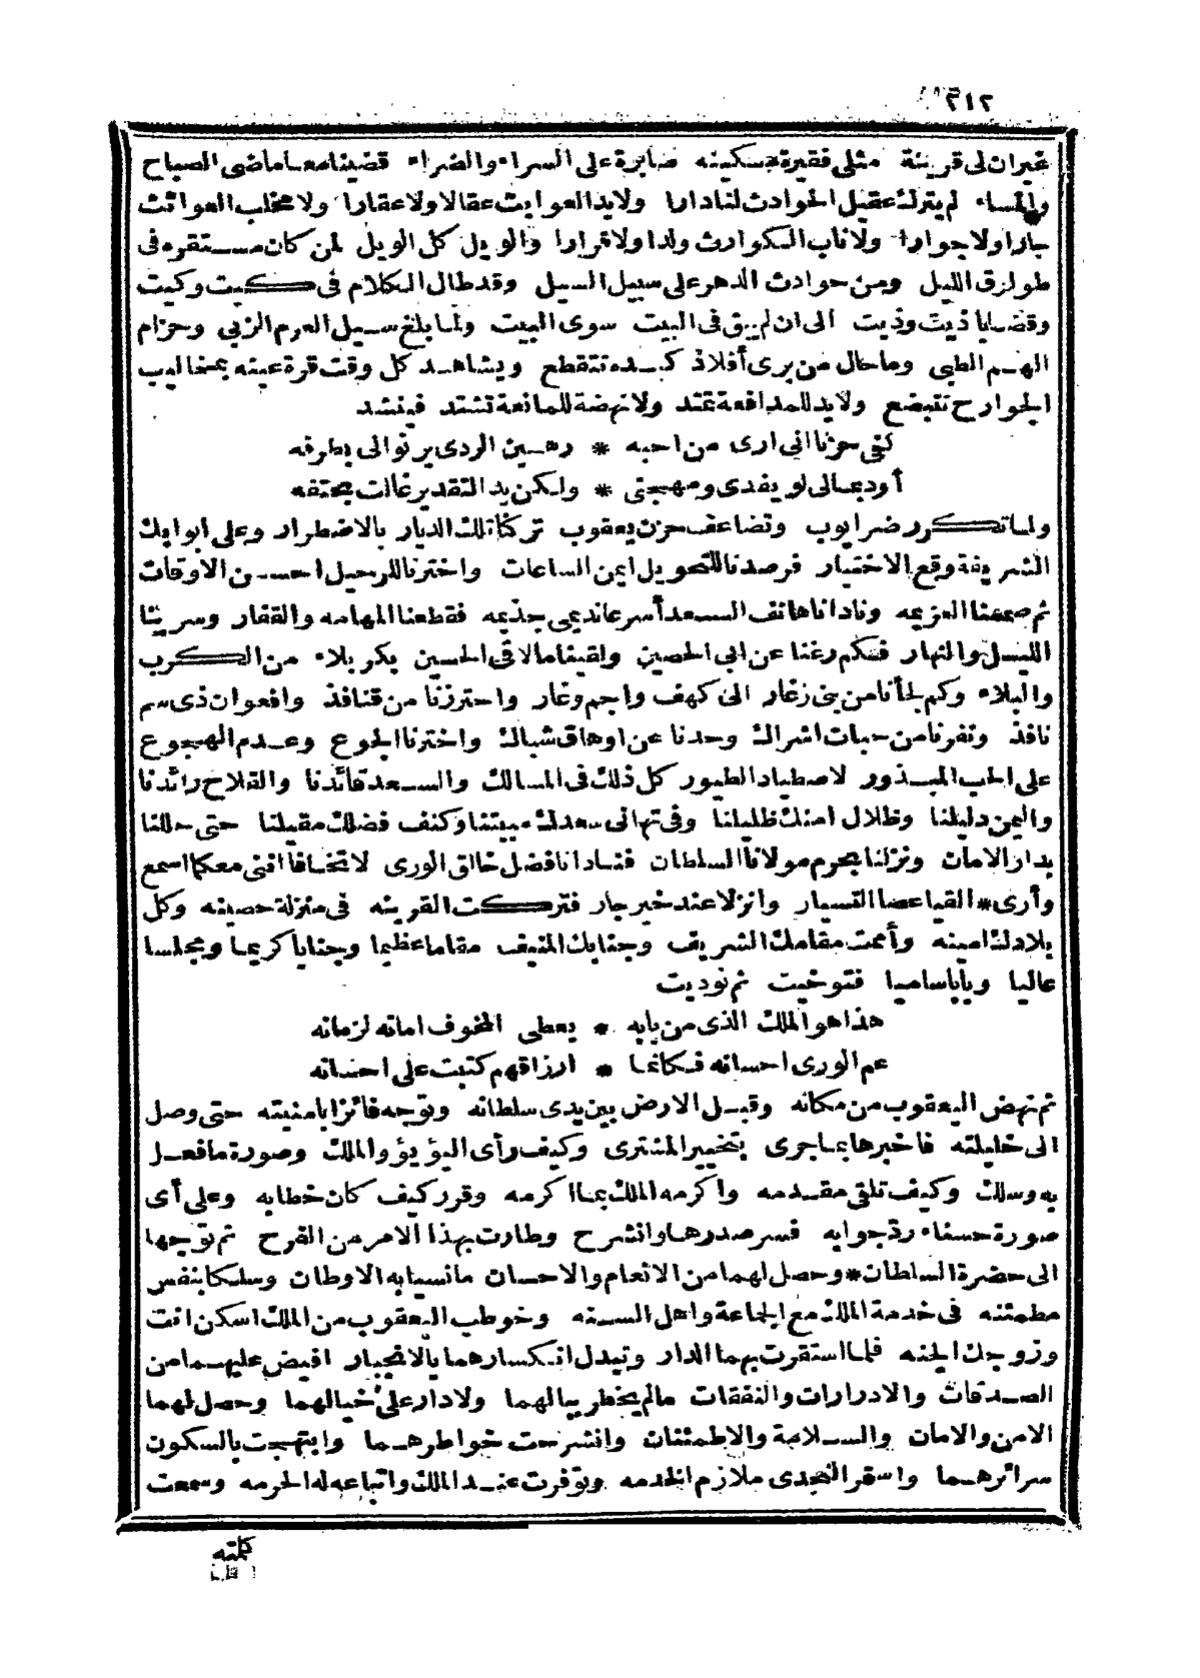 ٢١٢
غيران لى قرينة مثلى فقيرة مسكينه صابرة على السراء والضراء قضينا معا ماضى الصباح
والمساء لم يترك عقيل الحوادث لنا دارا ولا يد العوابث عقالا ولا عقارا ولا مخلب العوائث
جارا ولا جوارا ولا ناب الكوارث ولدا ولا قرارا والويل كل الويل لمن كان مستقره فى
طوارق الليل ومن حوادث الدهر على سبيل السيل وقد طال الكلام فى كيت وكيت
وقضايا ذيت وذيت الى ان لم يبق فى البيت سوى البيت ولما بلغ سيل العرم الزبى وحزام
الهم الطبى وما حال من يرى أفلاذ كبده تتقطع ويشاهد كل وقت قرة عينه بمخاليب
الجوارح تتبضع ولا يد للمدافعة تمتد ولا نهضة للمانعة تشتد فينشد
كفى حزنا انى ارى من احبه * رهين الردى يرنو الى بطرفه
أود بمالى لو يفدى ومهجتى * ولكن يد التقدير غالت بحتفه
ولما تكرر ضر ايوب وتضاعف حزن يعقوب تركنا تلك الديار بالاضطرار وعلى ابوابك
الشريفة وقع الاختيار فرصدنا للتحويل ايمن الساعات واخترنا للرحيل احسن الاوقات
ثم صممنا العزيمه ونادانا هاتف السعد أسرعا نديمى جذيمه فقطعنا المهامه والقفار وسرينا
الليل والنهار فكم رغنا عن ابى الحصين ولقينا ما لاقى الحسين بكربلاء من الكرب
والبلاء وكم لجأنا من بنى زغار الى كهف واجم وغار واحترزنا من قنافذ وافعوان ذى سم
نافذ ونفرنا من حبات اشراك وحدنا عن اوهاق شباك واخترنا الجوع وعدم الهجوع
على الحب المبذور لاصطياد الطيور كل ذلك فى المسالك والسعد قائدنا والفلاح رائدنا
واليمن دليلنا وظلال امنك ظليلنا وفى تهانى سعدك مبيتنا وكنف فضلك مقيلنا حتى حللنا
بدار الامان ونزلنا بحرم مولانا السلطان فنادانا فضل خالق الورى لا تخافا اننى معكما اسمع
وأرى * القيا عصا التسيار وانزلا عند خير جار فتركت القرينه فى منزلة حصينه وكل
بلادك امينه وأممت مقامك الشريف وجنابك المنيف مقاما عظيما وجنابا كريما ومجلسا
عاليا وبابا ساميا فتوخيت ثم نوديت
هذا هو الملك الذى من بابه * يعطى المخوف امانه لزمانه
عم الورى احسانه فكانما * ارزاقهم كتبت على احسانه
ثم نهض اليعقوب من مكانه وقبل الارض بين يدى سلطانه وتوجه فائزا بامنيته حتى وصل
الى خليلته فاخبرها بما جرى بتخيير المشترى وكيف رأى اليؤيؤ والملك وصورة ما فعل
به وسلك وكيف تلقى مقدمه واكرمه الملك بما اكرمه وقرر كيف كان خطابه وعلى أى
صورة حسناء رد جوابه فسر صدرها وانشرح وطارت بهذا الامر من الفرح ثم توجها
الى حضرة السلطان * وحصل لهما من الانعام والاحسان ما نسيا به الاوطان وسلكا بنفس
مطمئنه فى خدمة الملك مع الجماعة واهل السنه وخوطب اليعقوب من الملك اسكن انت
وزوجك الجنه فلما استقرت بهما الدار وتبدل انكسارهما بالانجبار افيض عليهما من
الصدقات والادرارات والنفقات ما لم يخطر ببالهما ولا دار على خيالهما وحصل لهما
الامن والامان والسلامة والاطمئنان وانشرحت خواطرهما وابتهجت بالسكون
سرائرهما واسفر النجدى ملازم الخدمه وتوفرت عند الملك واتباعه له الحرمه وسمعت
كلمته